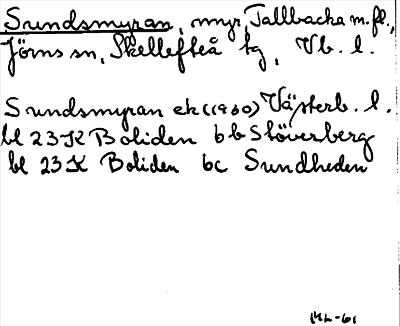 Sundsmyran, myr, Tallbacka m.fl.,
Jörns sn, Skellefteå kg, Vb. l.
Sundsmyran ek (1960) Västerb. l.
bl 23 K Boliden bb Stöverberg
bl 23 K Boliden bc Sundheden
ML-61